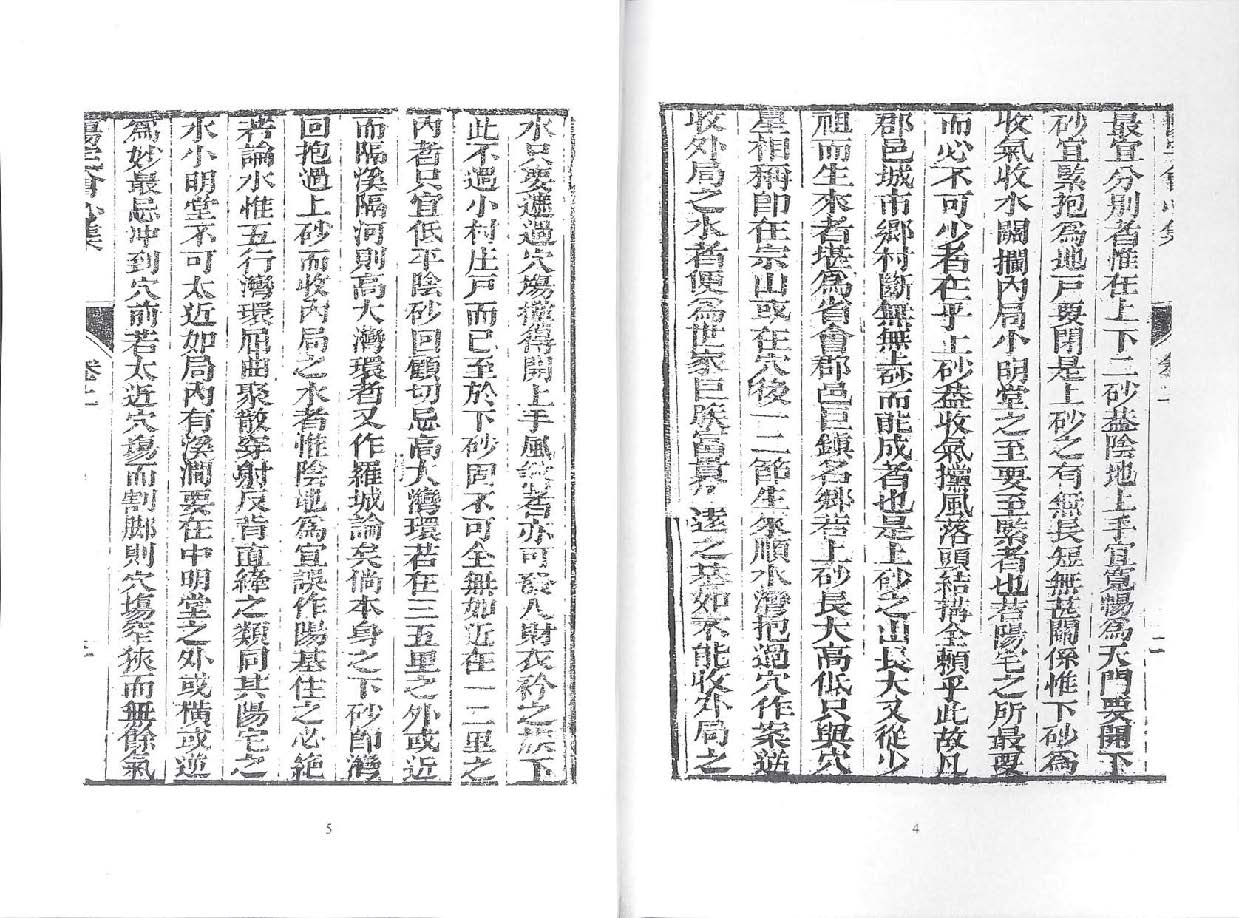 最宜分別者惟在上下二砂蓋陰地上手宜寬暢為天門要開下
砂宜緊抱為地戶要閉是上砂之有無長短無甚關係惟下砂為
收氣收水關攔內局小明堂之至要至緊者也若陽宅之所最要
而必不可少者在乎上砂蓋收氣擋風落頭結搆全賴乎此故凡
郡邑城市鄉村斷無無上砂而能成者也是上砂之山長大又從少
祖而生來者堪為省會郡邑巨鎮名鄉若上砂長大高低只與穴
星相稱即在宗山或在穴後一二節生來順水灣抱過穴作案逆
收外局之水者便為世家巨族富貴久遠之基如不能收外局之
水只要遮過穴塲擋得開上手風煞者亦可發人財衣衿之族下
此不過小村庄戶而已至於下砂固不可全無如近在一二里之
內者只宜低平陰砂回顧切忌高大灣環若在三五里之外或近
而隔溪隔河則高大灣環者又作羅城論矣倘本身之下砂即灣
回抱過上砂而收內局之水者惟陰地為宜誤作陽基住之必絕
若論水惟五行灣環屈曲聚散穿射反背直緯之類同其陽宅之
水小明堂不可太近如局內有溪澗要在中明堂之外或橫或逆
為妙最忌冲到穴前若太近穴塲而割脚則穴塲窄狹而無餘氣
陽宅會心集
卷上